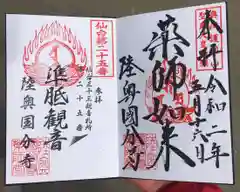 奉拝
令和二年
五月十六日
薬師如来
陸奥國分寺
仙台第二十五番
奉拝
仙台三十三観音札所
二十五番
准胝観音
陸奥国分寺